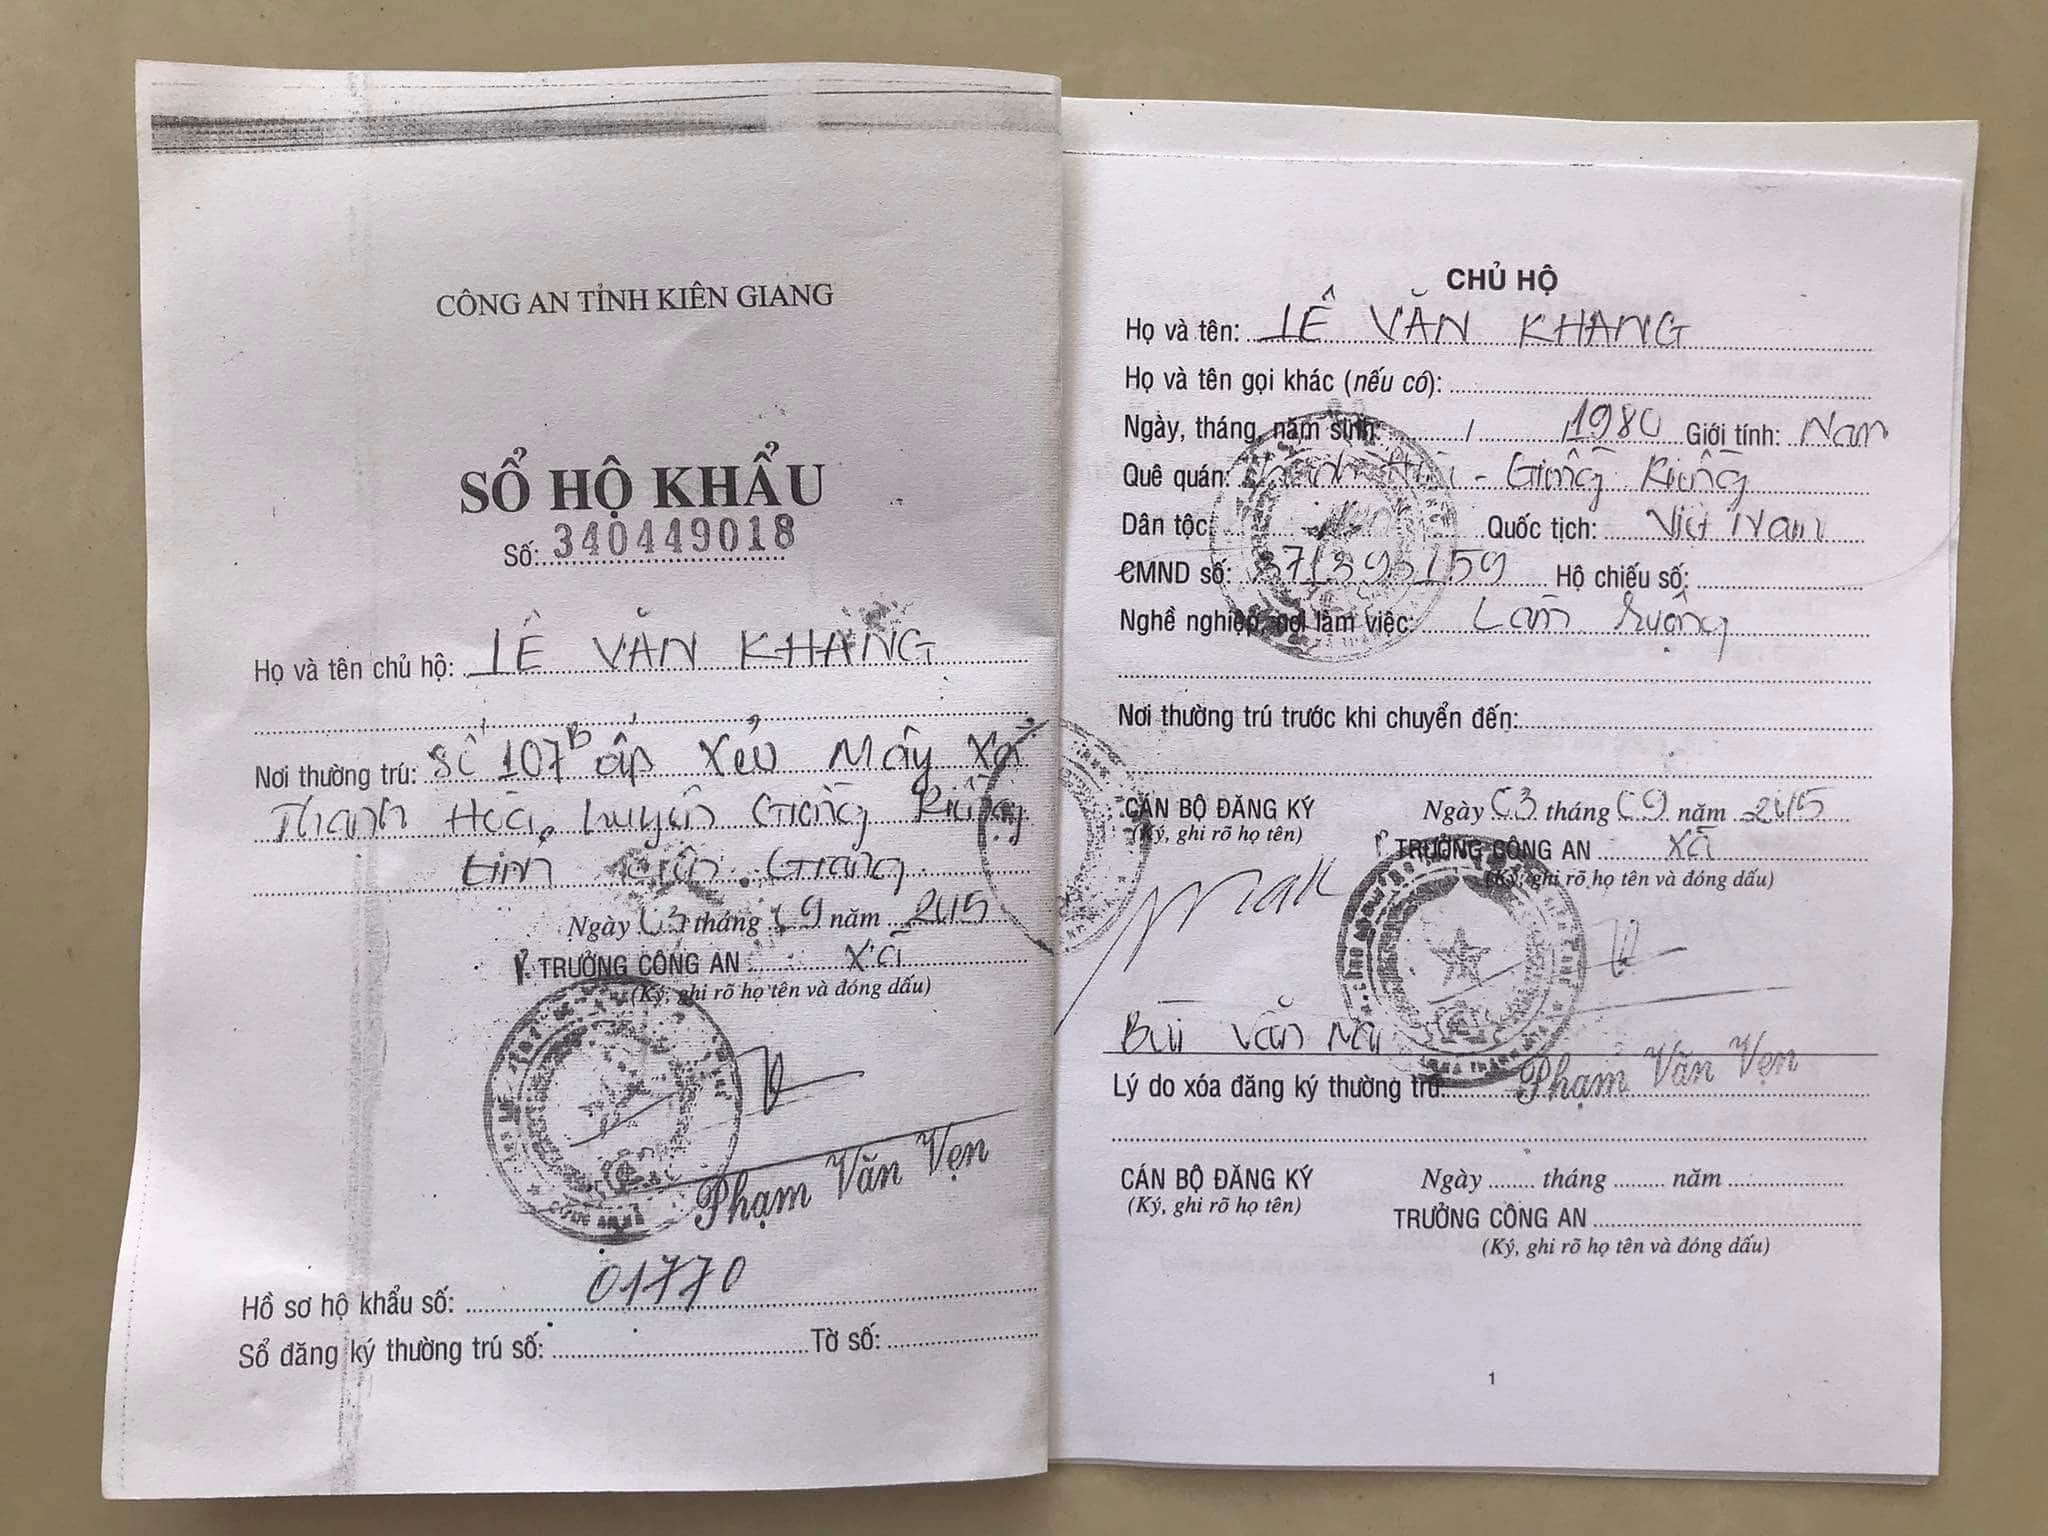 CÔNG AN TỈNH KIÊN GIANG
SỔ HỘ KHẨU
Số: 340449018
Họ và tên chủ hộ: LÊ VĂN KHANG
Nơi thường trú: Số 107B ấp Xẻo Mây Xã
Thạnh Hòa, huyện Giồng Riềng
tỉnh Kiên Giang
Ngày 03 tháng 09 năm 2015
P. TRƯỞNG CÔNG AN xã
(Ký, ghi rõ họ tên và đóng dấu)
Phạm Văn Vẹn
Hồ sơ hộ khẩu số: 01770
Sổ đăng ký thường trú số: Tờ số:
CHỦ HỘ
Họ và tên: LÊ VĂN KHANG
Họ và tên gọi khác (nếu có):
Ngày, tháng, năm sinh: / / 1980 Giới tính: Nam
Quê quán: Hòa - Giồng Riềng
Dân tộc: Quốc tịch: Việt Nam
CMND số: 371393159 Hộ chiếu số:
Nghề nghiệp, nơi làm việc: Làm ruộng
Nơi thường trú trước khi chuyển đến:
CÁN BỘ ĐĂNG KÝ
(Ký, ghi rõ họ tên)
Ngày 03 tháng 09 năm 2015
P. TRƯỞNG CÔNG AN xã
(Ký, ghi rõ họ tên và đóng dấu)
Bùi Văn
Phạm Văn Vẹn
Lý do xóa đăng ký thường trú:
CÁN BỘ ĐĂNG KÝ
(Ký, ghi rõ họ tên)
Ngày tháng năm
TRƯỞNG CÔNG AN
(Ký, ghi rõ họ tên và đóng dấu)
1